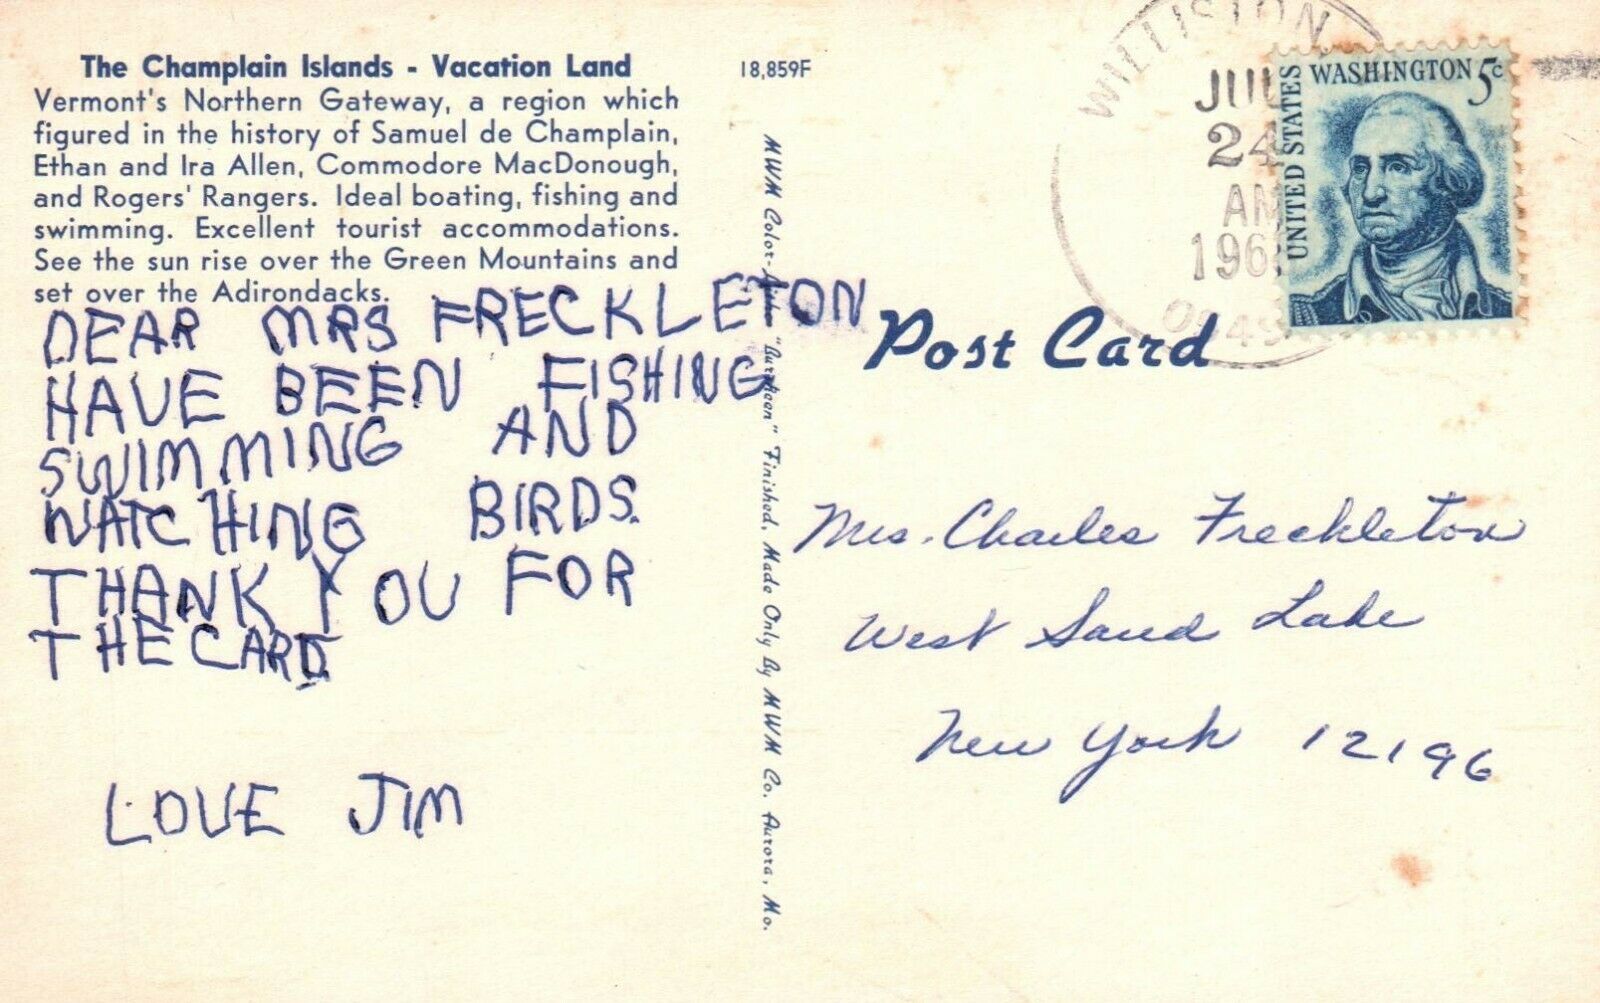 The Champlain Islands - Vacation Land
Vermont's Northern Gateway, a region which
figured in the history of Samuel de Champlain,
Ethan and Ira Allen, Commodore MacDonough,
and Rogers' Rangers. Ideal boating, fishing and
swimming. Excellent tourist accommodations.
See the sun rise over the Green Mountains and
set over the Adirondacks.
DEAR MRS FRECKLETON
HAVE BEEN FISHING
SWIMMING AND
WATCHING BIRDS.
THANK YOU FOR
THE CARD
LOVE JIM
18,859F
MWM Color-Litho "Buckteen" Finished. Made Only By MWM Co. Aurora, Mo.
WILLISTON
JUL
24
AM
196
UNITED STATES
WASHINGTON 5c
Post Card
Mrs. Charles Freckleton
West Sand Lake
New York 12196